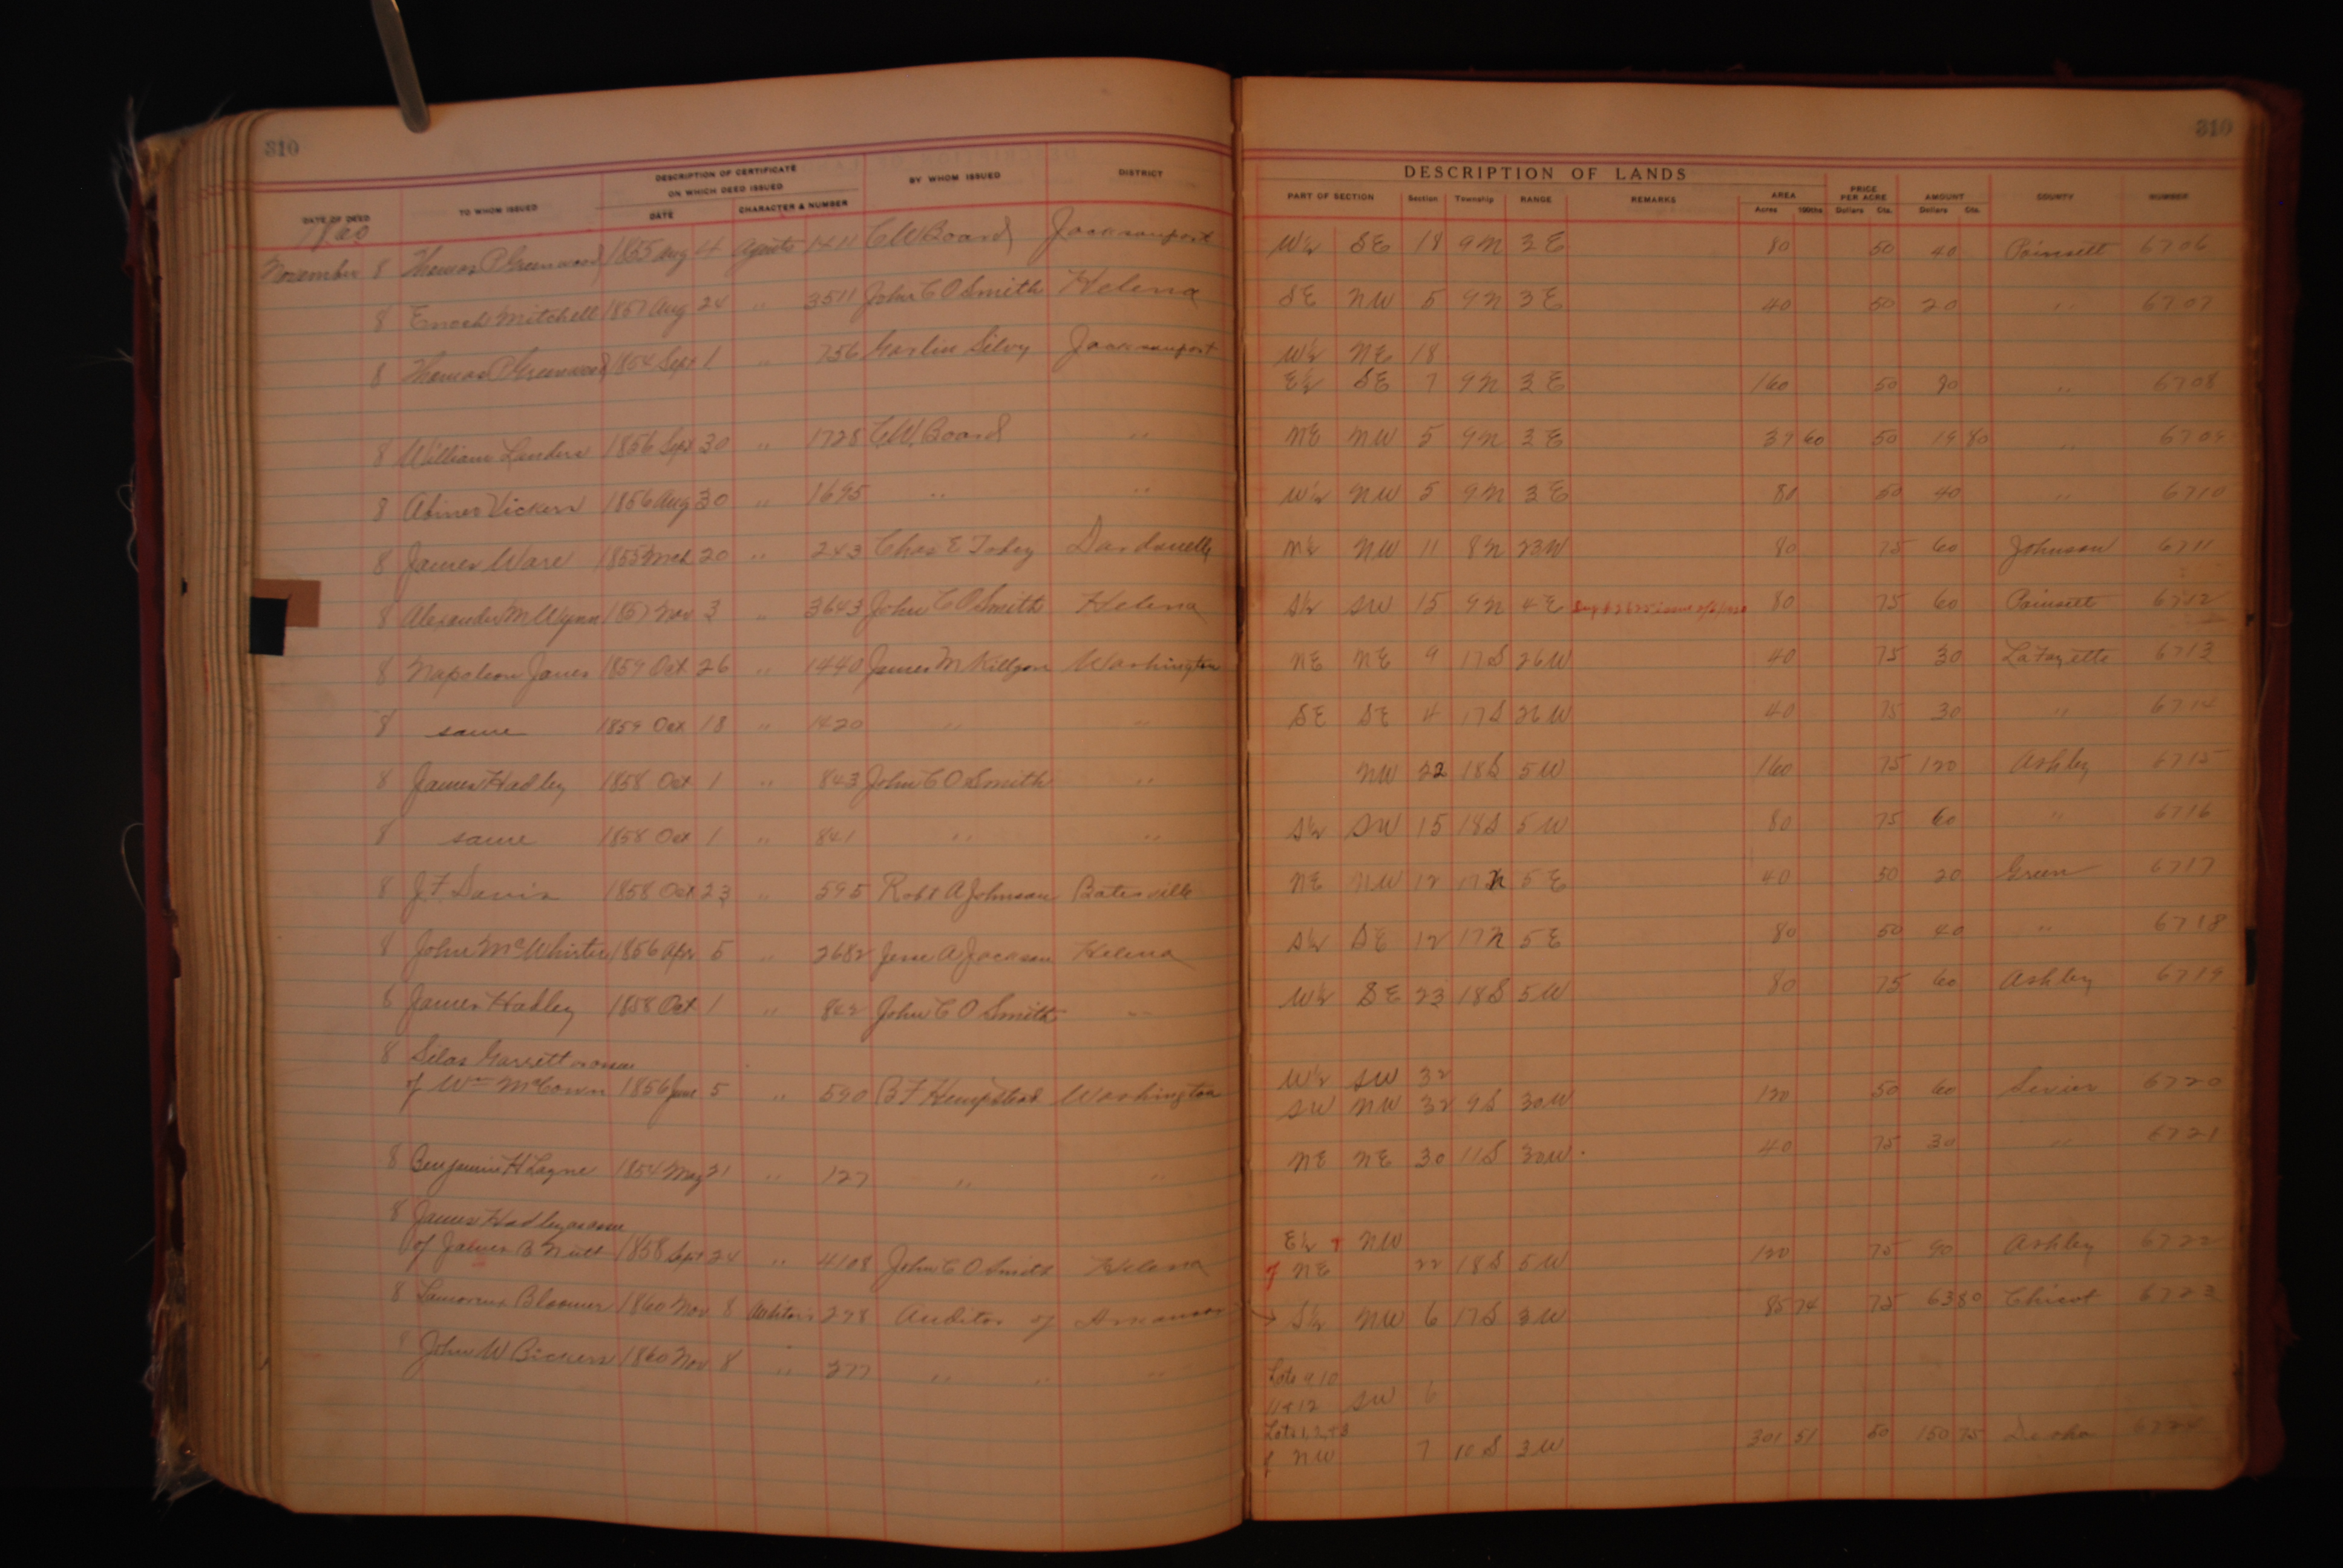 310 310
DESCRIPTION OF CERTIFICATE
ON WHICH DEED ISSUED
DESCRIPTION OF LANDS
DATE OF DEED TO WHOM ISSUED DATE CHARACTER & NUMBER BY WHOM ISSUED DISTRICT PART OF SECTION Section Township RANGE REMARKS AREA Acres 100ths PRICE PER ACRE Dollars Cts. AMOUNT Dollars Cts. COUNTY NUMBER
1860
November 8 Thomas P Greenwood 1855 Aug 4 Agents 1411 C W Board Jacksonport W½ SE 18 9N 3E 80 50 40 Poinsett 6706
8 Enoch Mitchell 1857 Aug 24 " 3511 John C O Smith Helena SE NW 5 9N 3E 40 50 20 " 6707
8 Thomas P Greenwood 1854 Sept 1 " 756 Jacksonport W½ NE 18
E½ SE 7 9N 3E 160 50 " 6708
8 William Landers 1856 Sept 30 " 1728 C W Board " NE NW 5 9N 3E 39 60 50 19 80 " 6709
8 Abner Vickers 1856 Aug 30 " 1695 " " W½ NW 5 9N 3E 80 50 40 " 6710
8 James Ware 1855 Mch 20 " 243 Chas E Tobey Dardanelle N½ NW 11 8N 23W 80 75 60 Johnson 6711
8 Alexander M Wynn 1857 Nov 3 " 3643 John C O Smith Helena S½ SW 15 9N 4E 80 75 60 Poinsett 6712
8 Napoleon Jones 1859 Oct 26 " 1440 James M Killgore Washington NE NE 9 17S 26W 40 75 30 LaFayette 6713
8 same 1859 Oct 18 " 1420 " " SE SE 4 17S 26W 40 75 30 " 6714
8 James Hadley 1858 Oct 1 " 843 John C O Smith " NW 22 18S 5W 160 75 120 Ashley 6715
8 same 1858 Oct 1 " 841 " " S½ SW 15 18S 5W 80 75 60 " 6716
8 J. F. Davis 1858 Oct 23 " 595 Robt A Johnson Batesville NE NW 12 17N 5E 40 50 20 Green 6717
8 John McWhirter 1856 Apr 5 " 2682 Jesse A Jackson Helena S½ SE 12 17N 5E 80 50 40 " 6718
8 James Hadley 1858 Oct 1 " 842 John C O Smith " W½ SE 23 18S 5W 80 75 60 Ashley 6719
8 Silas Garrett as assee W½ SW 32
of Wm McCown 1856 June 5 " 590 B F Hempstead Washington SW NW 32 9S 30W 120 50 60 Sevier 6720
8 Benjamin H Layne 1854 May 21 " 127 " " NE NE 30 11S 30W 40 75 30 " 6721
8 James Hadley as assee E½ NW
of James B Nutt 1858 Sept 24 " 4108 John C O Smith Helena of NE 22 18S 5W 120 75 90 Ashley 6722
8 Bloomer 1860 Nov 8 Auditors 278 Auditor of Arkansas S½ NW 6 17S 3W 85 74 75 63 80 Chicot 6723
8 John W Bickers 1860 Nov 8 " 277 " " " Lots 9 10
11 & 12 SW 6
Lots 1, 2, & 3
of NW 7 10S 3W 301 51 50 150 75 Desha 6724